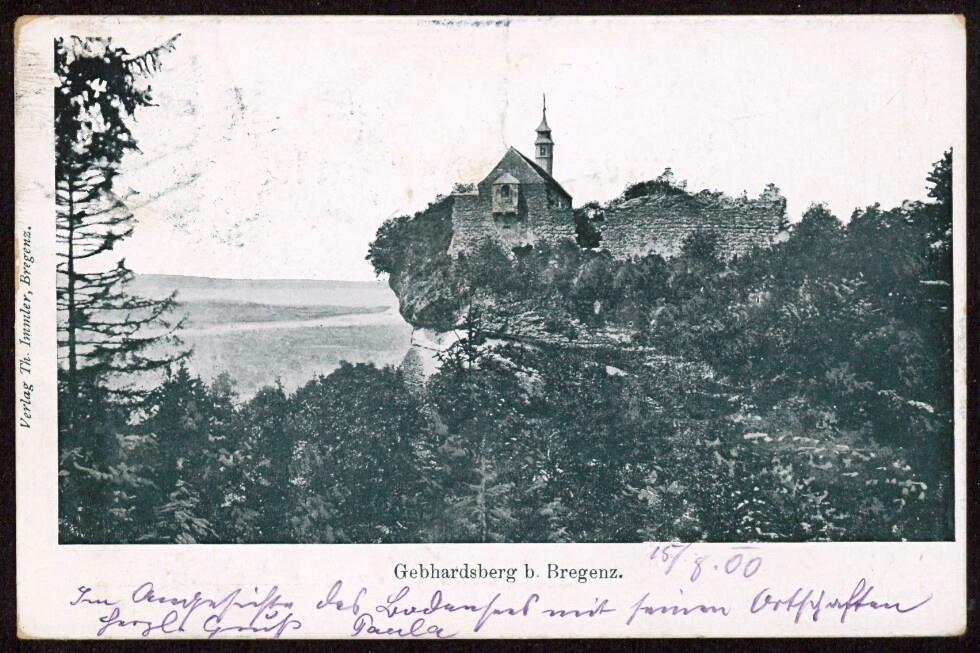 Verlag Th. Immler, Bregenz.
Gebhardsberg b. Bregenz.
15/8.00
Im Angesichte des Bodensees mit seinen Ortschaften
herzl. Gruß Paula